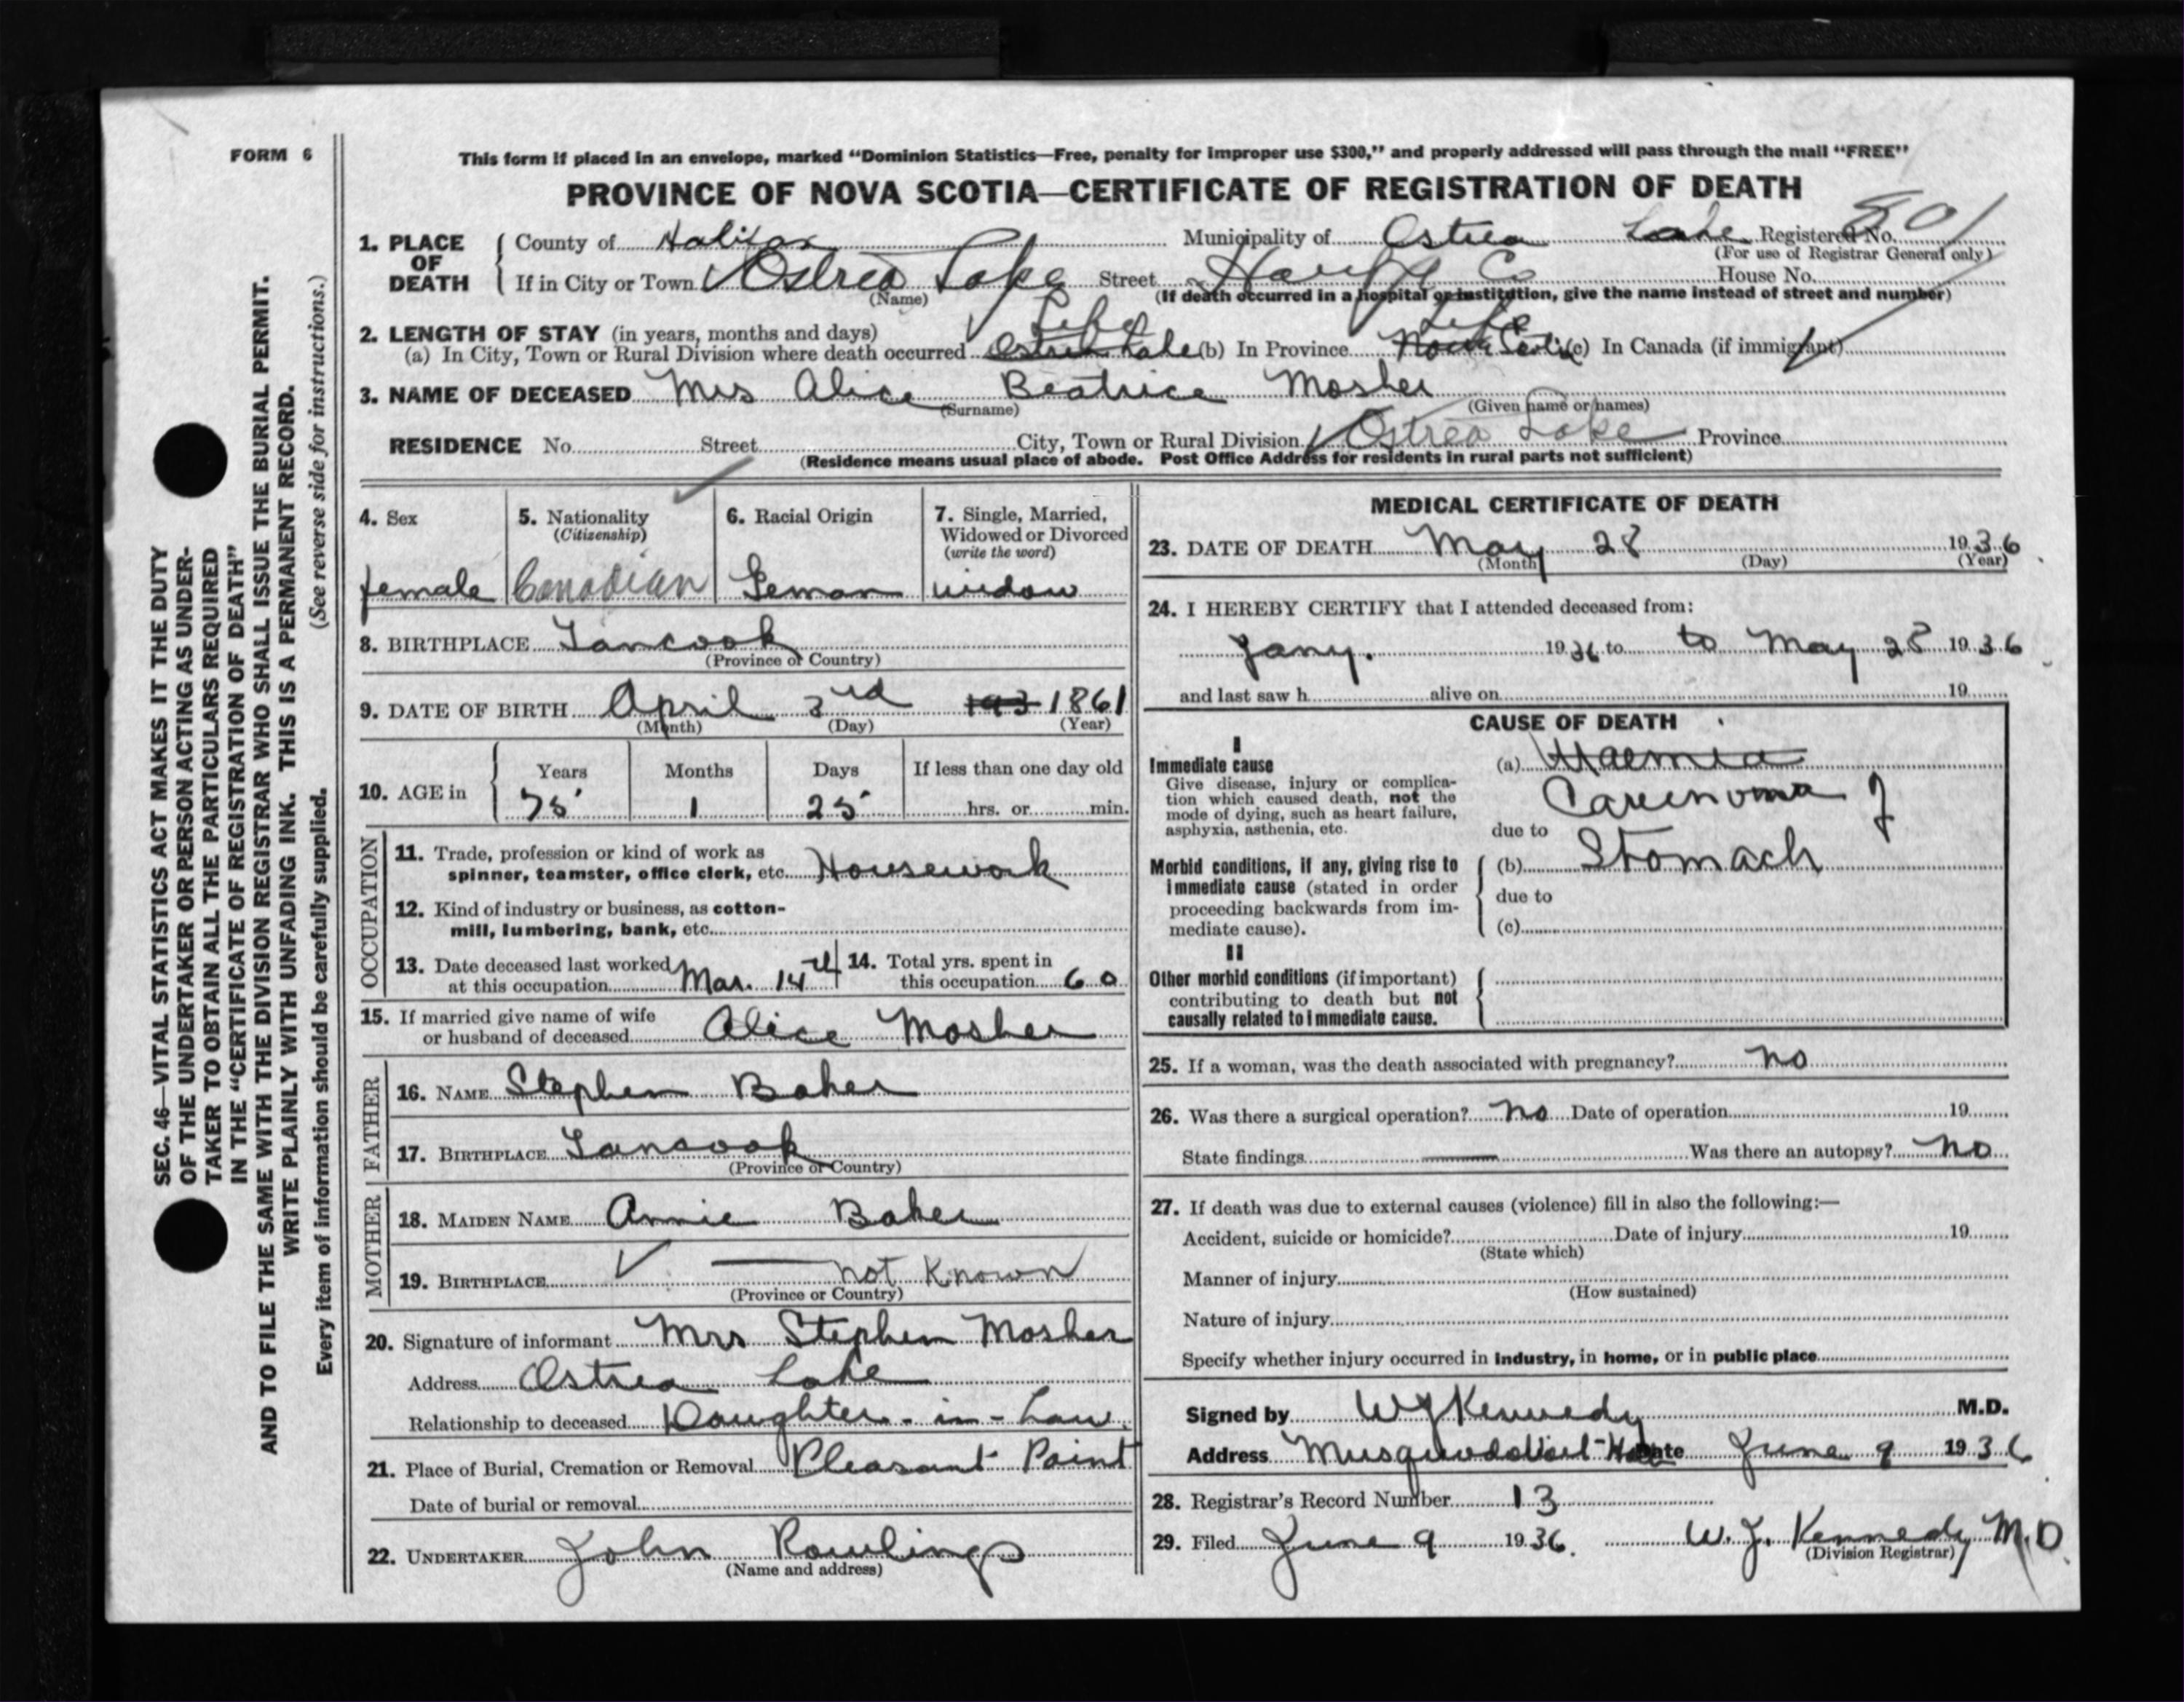 FORM 6
This form if placed in an envelope, marked “Dominion Statistics—Free, penalty for improper use $300,” and properly addressed will pass through the mail “FREE”
PROVINCE OF NOVA SCOTIA—CERTIFICATE OF REGISTRATION OF DEATH
1. PLACE OF DEATH { County of Halifax Municipality of Ostrea Lake Registered No. 801
(For use of Registrar General only)
If in City or Town Ostrea Lake Street Co House No.
(Name) (If death occurred in a hospital or institution, give the name instead of street and number)
2. LENGTH OF STAY (in years, months and days) Life Life
(a) In City, Town or Rural Division where death occurred Ostrea Lake (b) In Province Nova Scotia (c) In Canada (if immigrant)
3. NAME OF DECEASED Mrs Alice Beatrice Mosher
(Surname) (Given name or names)
RESIDENCE No. Street City, Town or Rural Division Ostrea Lake Province
(Residence means usual place of abode. Post Office Address for residents in rural parts not sufficient)
4. Sex
female
5. Nationality
(Citizenship)
Canadian
6. Racial Origin
German
7. Single, Married,
Widowed or Divorced
(write the word)
widow
8. BIRTHPLACE Tancook
(Province or Country)
9. DATE OF BIRTH April 3rd 193 1861
(Month) (Day) (Year)
10. AGE in { Years Months Days If less than one day old
75 1 25 hrs. or min.
OCCUPATION
11. Trade, profession or kind of work as
spinner, teamster, office clerk, etc. Housework
12. Kind of industry or business, as cotton-
mill, lumbering, bank, etc.
13. Date deceased last worked
at this occupation Mar. 14th
14. Total yrs. spent in
this occupation 60
15. If married give name of wife
or husband of deceased Alice Mosher
FATHER
16. NAME Stephen Baker
17. BIRTHPLACE Tancook
(Province or Country)
MOTHER
18. MAIDEN NAME Annie Baker
19. BIRTHPLACE not known
(Province or Country)
20. Signature of informant Mrs Stephen Mosher
Address Ostrea Lake
Relationship to deceased Daughter-in-Law.
21. Place of Burial, Cremation or Removal Pleasant Point
Date of burial or removal
22. UNDERTAKER John Rowlings
(Name and address)
MEDICAL CERTIFICATE OF DEATH
23. DATE OF DEATH May 28 1936
(Month) (Day) (Year)
24. I HEREBY CERTIFY that I attended deceased from:
Jany. 1936 to to May 28 1936
and last saw h alive on 19
CAUSE OF DEATH
I
Immediate cause
Give disease, injury or complica-
tion which caused death, not the
mode of dying, such as heart failure,
asphyxia, asthenia, etc.
(a) Uraemia
Carcinoma of
due to
Morbid conditions, if any, giving rise to
immediate cause (stated in order
proceeding backwards from im-
mediate cause).
(b) Stomach
due to
(c)
II
Other morbid conditions (if important)
contributing to death but not
causally related to immediate cause.
25. If a woman, was the death associated with pregnancy? no
26. Was there a surgical operation? No Date of operation 19
State findings Was there an autopsy? No
27. If death was due to external causes (violence) fill in also the following:—
Accident, suicide or homicide? Date of injury 19
(State which)
Manner of injury
(How sustained)
Nature of injury
Specify whether injury occurred in industry, in home, or in public place
Signed by WJ Kennedy M.D.
Address Musquodoboit Date June 9 1936
28. Registrar's Record Number 13
29. Filed June 9 1936. W. J. Kennedy M.D
(Division Registrar)
SEC. 46—VITAL STATISTICS ACT MAKES IT THE DUTY
OF THE UNDERTAKER OR PERSON ACTING AS UNDER-
TAKER TO OBTAIN ALL THE PARTICULARS REQUIRED
IN THE “CERTIFICATE OF REGISTRATION OF DEATH”
AND TO FILE THE SAME WITH THE DIVISION REGISTRAR WHO SHALL ISSUE THE BURIAL PERMIT.
WRITE PLAINLY WITH UNFADING INK. THIS IS A PERMANENT RECORD.
Every item of information should be carefully supplied. (See reverse side for instructions.)